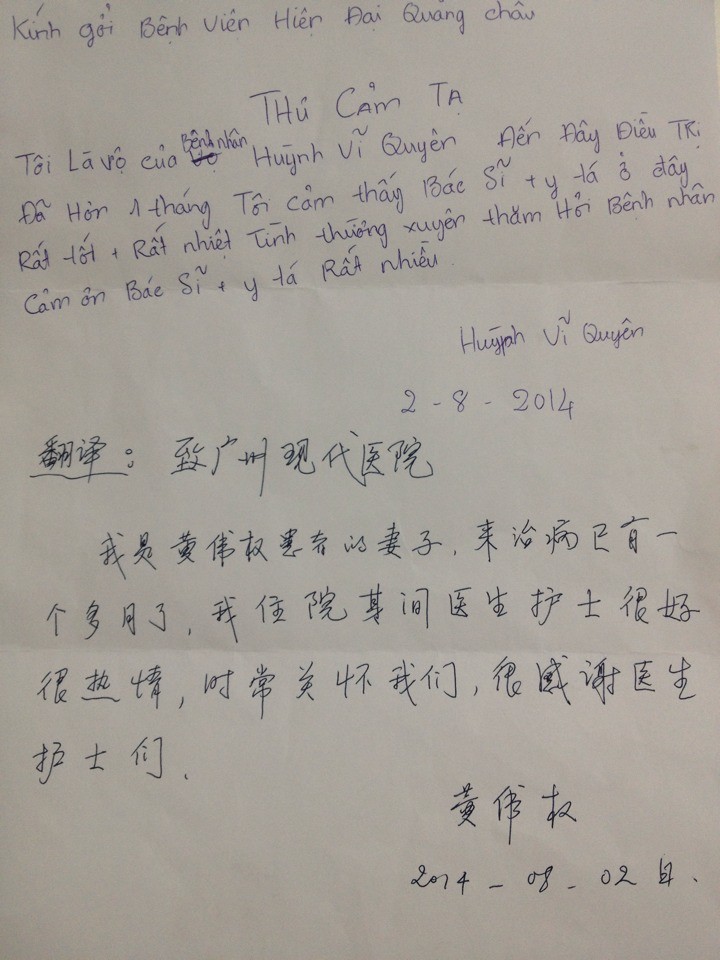 Kính gởi Bệnh Viện Hiện Đại Quảng châu
THƯ CẢM TẠ
Tôi Là vợ của Bệnh nhân Huỳnh Vĩ Quyên Đến Đây Điều Trị
Đã Hơn 1 tháng Tôi cảm thấy Bác Sĩ + y tá ở đây
Rất tốt + Rất nhiệt Tình thường xuyên thăm Hỏi Bệnh nhân
Cảm ơn Bác Sĩ + y tá Rất nhiều.
Huỳnh Vĩ Quyên
2 - 8 - 2014
翻译: 致广州现代医院
我是黄伟权患者的妻子,来治病已有一
个多月了,我住院其间医生护士很好
很热情,时常关怀我们,很感谢医生
护士们.
黄伟权
2014 - 08 - 02日.